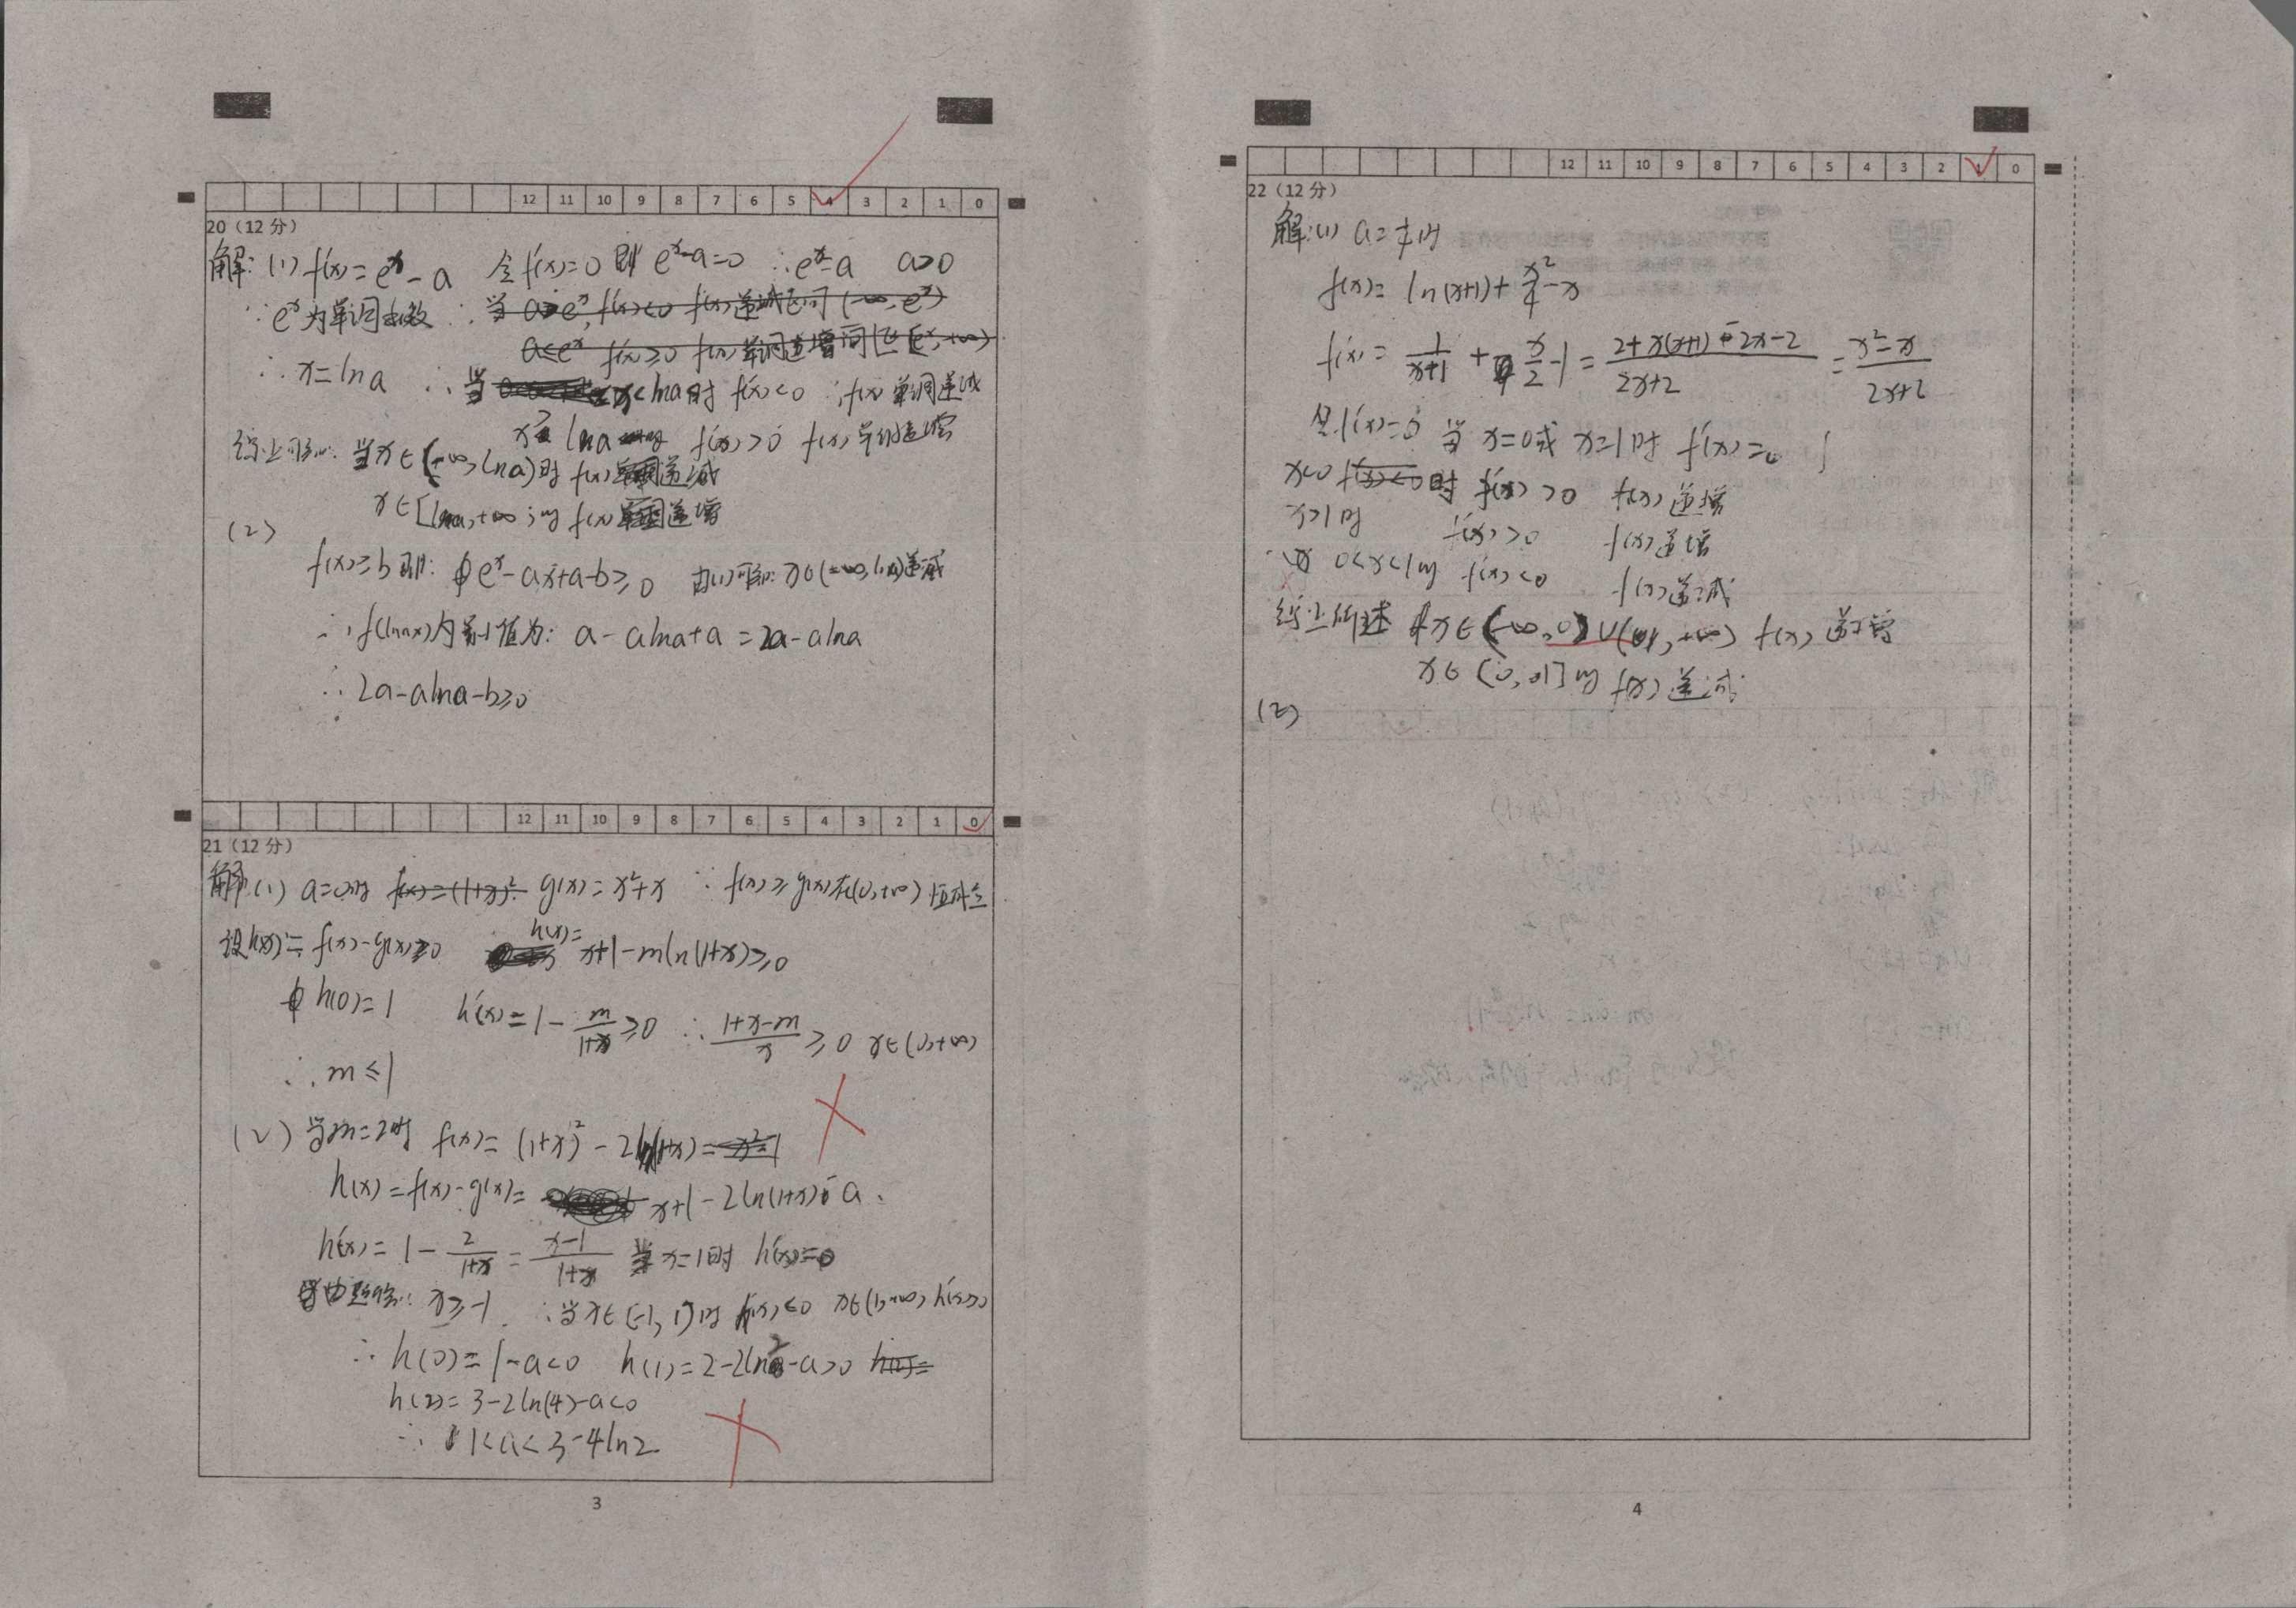 12 11 10 9 8 7 6 5 4 3 2 1 0
20（12 分）
解: (1) f'(x)=e^x-a 令f'(x)=0 则 e^x-a=0 ∴e^x=a a>0
∵e^x为单调函数 ∴当 a>e^x, f'(x)<0 f(x)递减区间(-∞, e^x)
a≤e^x f'(x)≥0 f(x)单调递增区间[e^x,+∞)
∴x=lna ∴当 x<lna时 f'(x)<0 ∴f(x) 单调递减
x≥lna f'(x)>0 f(x)单调递增
综上可知: 当x∈(-∞, lna)时 f(x)单调递减
x∈[lna,+∞)时 f(x)单调递增
(2)
f(x)≥b 即: e^x-ax+a-b≥0 由(1)可知: x∈(-∞, lna)递减
∴f(lnx)为最小值为: a-alna+a=2a-alna
∴2a-alna-b≥0
12 11 10 9 8 7 6 5 4 3 2 1 0
21（12 分）
解(1) a=0时 f(x)=(1+x)^2- g(x)=x^2+x ∵f(x)≥g(x)在(0,+∞)恒成立
设h(x)=f(x)-g(x)≥0 h(x)=x+1-mln(1+x)≥0
h(0)=1 h'(x)=1-m/(1+x)≥0 ∴(1+x-m)/x≥0 x∈(0,+∞)
∴m≤1
(2) 当m=2时 f(x)=(1+x)^2-2ln(1+x)=x^2=1
h(x)=f(x)-g(x)= x+1-2ln(1+x)-a.
h'(x)=1-2/(1+x)=(x-1)/(1+x) 当x=1时 h'(x)=0
由题知: x≥-1. ∴当x∈(-1, 1)时 h'(x)<0 x∈(1,+∞) h'(x)>0
∴h(0)=1-a<0 h(1)=2-2ln2-a>0 h(2)=
h(2)=3-2ln(4)-a<0
∴1<a<3-4ln2
3
12 11 10 9 8 7 6 5 4 3 2 1 0
22（12 分）
解:(1) a=1/4时
f(x)=ln(x+1)+x^2/4-x
f'(x)=1/(x+1)+x/2-1=(2+x(x+1)-2x-2)/(2x+2)=(x^2-x)/(2x+2)
令f'(x)=0 当x=0或x=1时 f'(x)=0
x<0 f'(x)<0 时 f'(x)>0 f(x)递增
x>1时 f'(x)>0 f(x)递增
0<x<1时 f'(x)<0 f(x)递减
综上所述 x∈(-∞,0)∪(1,+∞) f(x)递增
x∈[0,1]时 f(x)递减
(2)
4